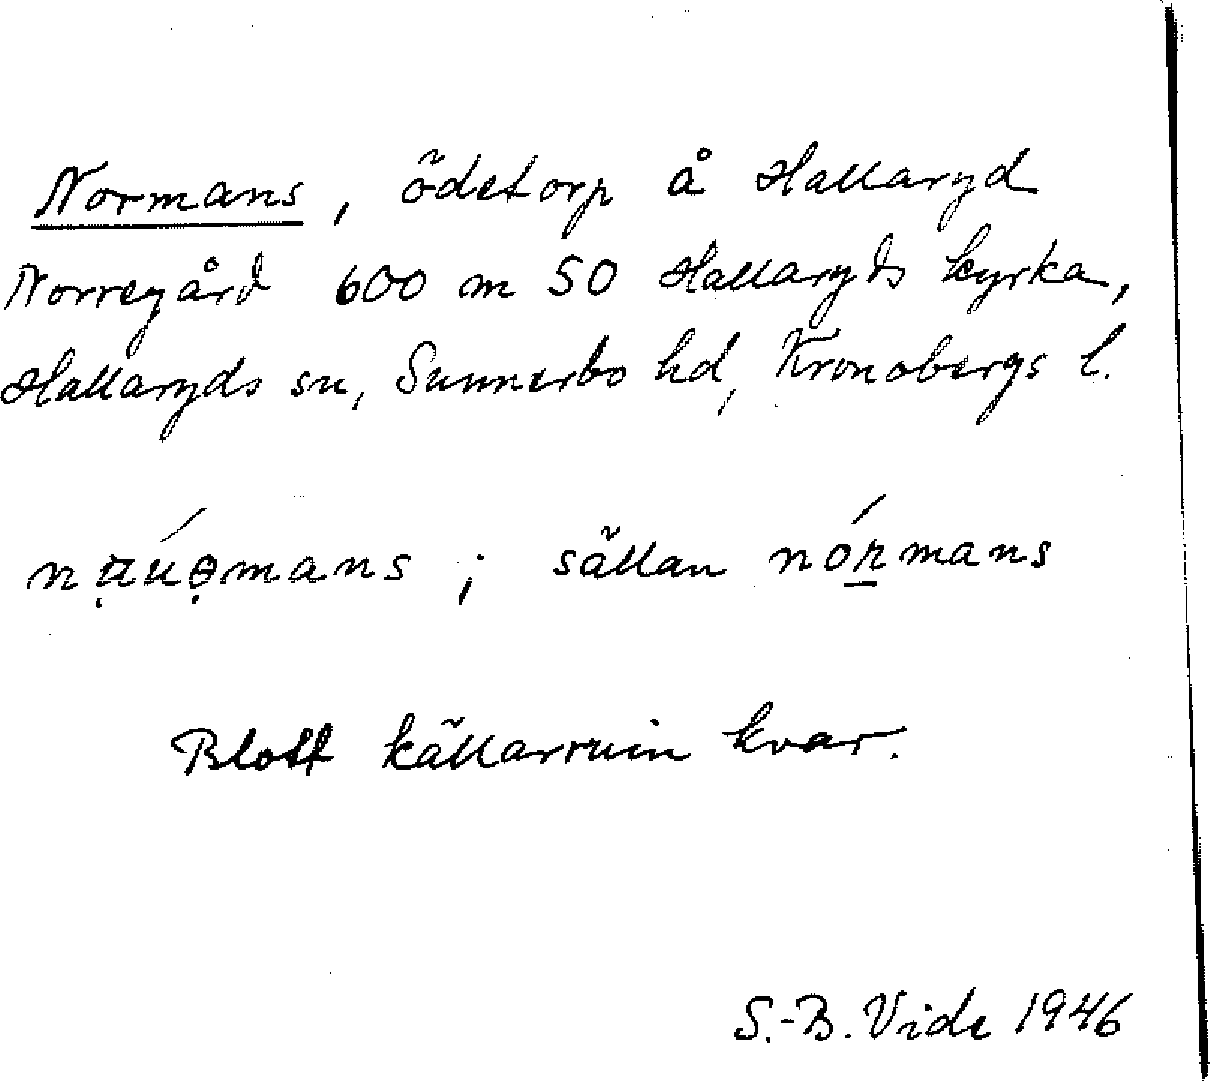 Normans, ödetorp å Hallaryd
Norregård 600 m SO Hallaryds kyrka,
Hallaryds sn, Sunnerbo hd, Kronobergs l.
; sällan
Blott källarruin kvar.
S.-B. Vide 1946